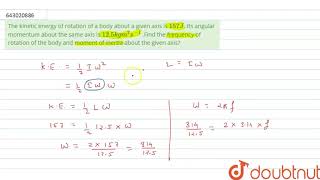 643020886
The kinetic energy of rotation of a body about a given axis is 157J. Its angular
momentum about the same axis is 12.5kgm²s⁻¹. Find the frequency of
rotation of the body and moment of inertia about the given axis?
K.E. = 1/2 I W² L = I W
= 1/2 I W W
K.E. = 1/2 L W W = 2π f
157 = 1/2 12.5 × W 314/12.5 = 2 × 3.14 × f
W = 2 × 157/12.5 = 314/12.5
doubtnut